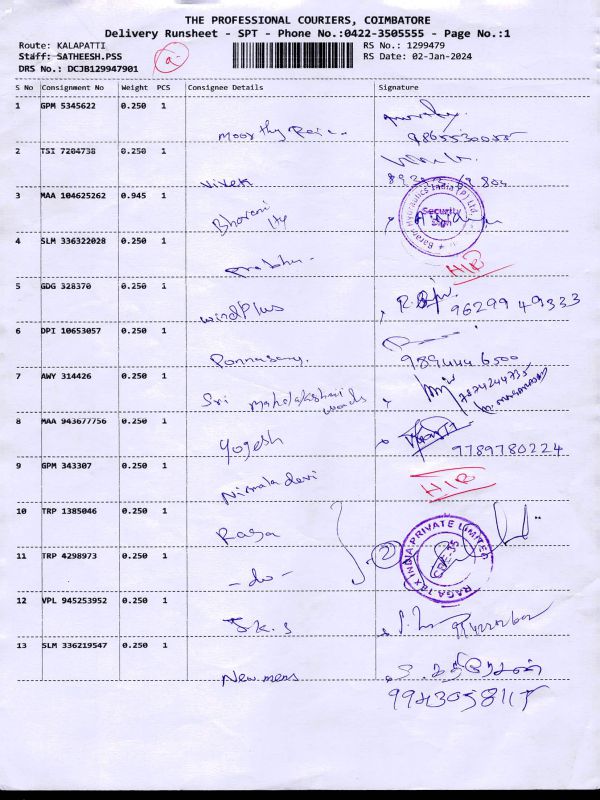 THE PROFESSIONAL COURIERS, COIMBATORE
Delivery Runsheet - SPT - Phone No.:0422-3505555 - Page No.:1
Route: KALAPATTI RS No.: 1299479
Staff: SATHEESH.PSS RS Date: 02-Jan-2024
DRS No.: DCJB129947901
S No Consignment No Weight PCS Consignee Details Signature
1 GPM 5345622 0.250 1
Moorthy
2 TSI 7204738 0.250 1
Vivek
3 MAA 104625262 0.945 1
Bharani
Security
Sign
4 SLM 336322028 0.250 1
Prabhu.
HIR
5 GDG 328370 0.250 1
windPlus 96299 49333
6 DPI 10653057 0.250 1
Ponnusamy. 989444 6500
7 AWY 314426 0.250 1
Sri mahalakshmi
8 MAA 943677756 0.250 1
yogesh 9789780224
9 GPM 343307 0.250 1
Nirmala devi HIR
10 TRP 1385046 0.250 1
Raga
2
RAGA TEX INDIA PRIVATE LIMITED
CBE-35
11 TRP 4298973 0.250 1
- do -
12 VPL 945253952 0.250 1
S.K.S
13 SLM 336219547 0.250 1
New mens